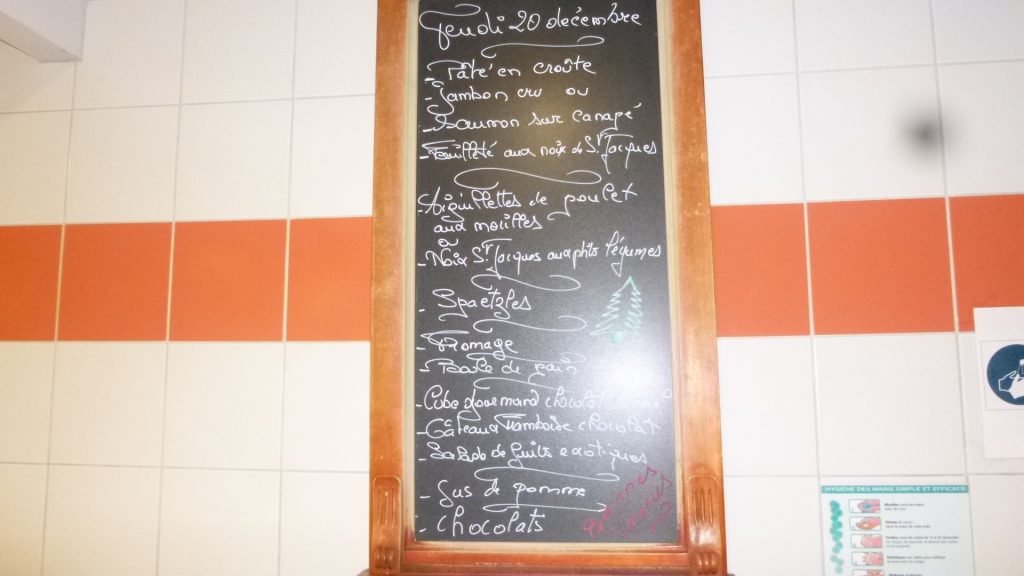 Jeudi 20 décembre
- Pâté en croûte
- Jambon cru ou
- Saumon sur canapé
- Feuilleté aux noix de St Jacques
- Aiguillettes de poulet
aux morilles
ou
- Noix St Jacques aux ptits légumes
- Spaetzles
- Fromage
- Boule de pain
- Cube gourmand chocolat
- Gâteau Framboise chocolat
- Salade de fruits exotiques
- Jus de pomme
- Chocolats
Bonnes
HYGIÈNE DES MAINS SIMPLE ET EFFICACE